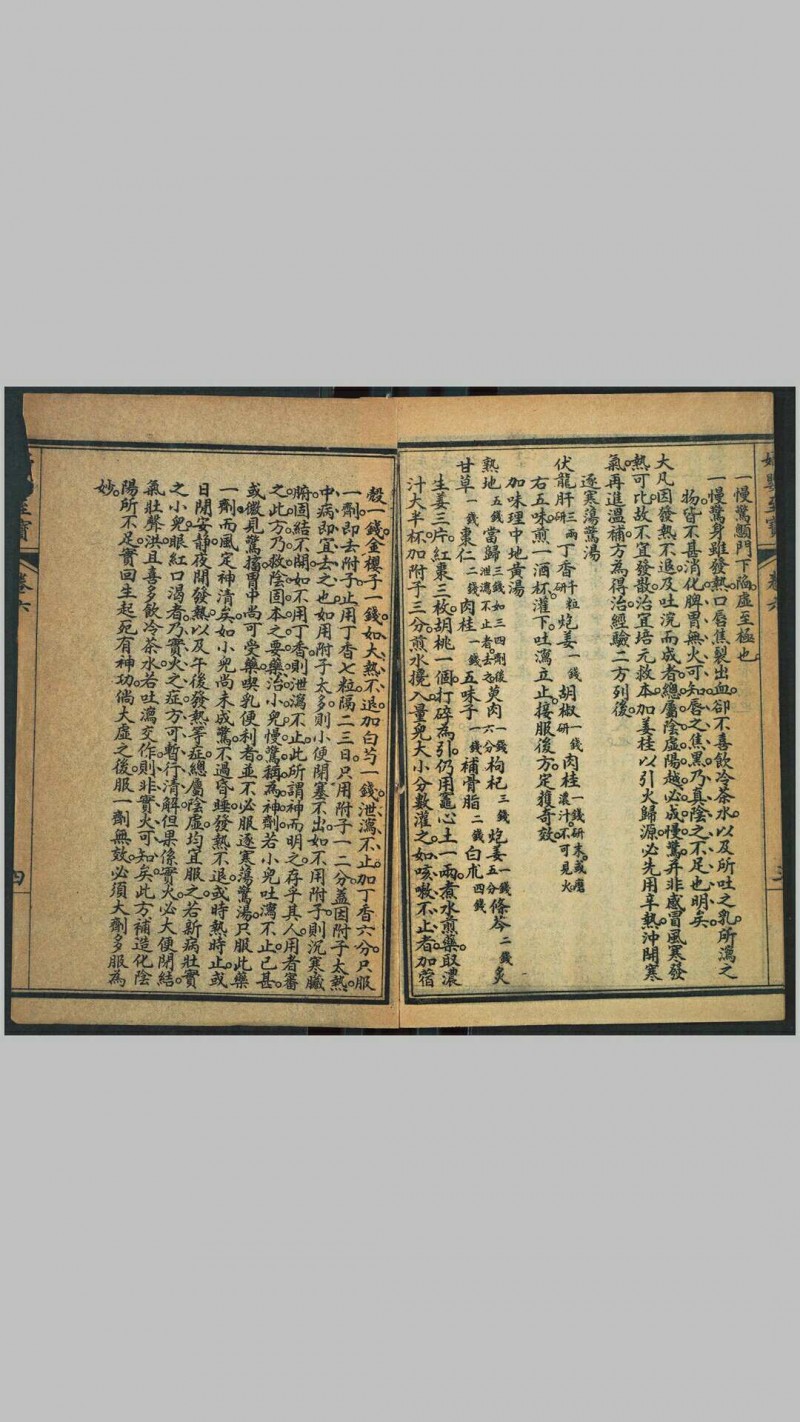 一慢驚顖門下陷。虛至極也。
一慢驚身雖發熱。口唇焦裂出血。卻不喜飲冷茶水。以及所吐之乳。所瀉之
物。皆不甚消化。脾胃無火可知。唇之焦黑。乃真陰之不足也明矣。
大凡因發熱不退。及吐瀉而成者。總屬陰虛陽越。必成慢驚。并非感冒風寒發
熱可比。故不宜發散。治宜培元救本。加姜桂以引火歸源。必先用辛熱沖開寒
氣。再進溫補方為得治。經驗二方列後。
逐寒蕩驚湯
伏龍肝研三兩 丁香十粒研 炮姜一錢 胡椒一錢研 肉桂一錢研末。或磨濃汁。不可見火
右五味。煎一酒杯灌下。吐瀉立止。接服後方。定獲奇效。
加味理中地黃湯
熟地五錢 當歸三錢如三四劑後泄瀉不止者。去之 萸肉一錢六分 枸杞三錢 炮姜一錢五分 條芩二錢 炙
甘草一錢 棗仁二錢 肉桂一錢 五味子一錢 補骨脂二錢 白朮四錢
生姜三片。紅棗三枚。胡桃一個。打碎為引。仍用竈心土一兩。煮水煎藥。取濃
汁大半杯。加附子三分。煎水攙入。量兒大小分數灌之。如咳嗽不止者。加罌
殼一錢。金櫻子一錢。如大熱不退。加白芍一錢。泄瀉不止。加丁香六分。只服
一劑。即去附子。止用丁香七粒。隔二三日。只用附子一二分。蓋因附子太熱。
中病即宜去之也。如用附子太多。則小便閉塞不出。如不用附子。則沉寒臟
腑。固結不開。如不用丁香。則泄瀉不止。此所謂神而明之。存乎其人。用者審
之。此方乃救陰固本之要藥。治小兒慢驚。稱為神劑。若小兒吐瀉不止已甚。
或微見驚搐。胃中尚可受藥。喫乳便利者。並不必服逐寒蕩驚湯。只服此藥
一劑。而風定神清矣。如小兒尚未成驚。不過昏睡發熱不退。或時熱時止。或
日間安靜。夜間發熱。以及午後發熱等症。總屬陰虛。均宜服之。若新病壯實
之小兒。眼紅口渴者。乃實火之症。方可暫行清解。但果係實火。必大便閉結。
氣壯聲洪。且喜多飲冷茶水。若吐瀉交作。則非實火可知矣。此方補造化陰
陽所不足。實回生起死。有神功。倘大虛之後。服一劑無效。必須大劑多服為
妙。
卷六
四